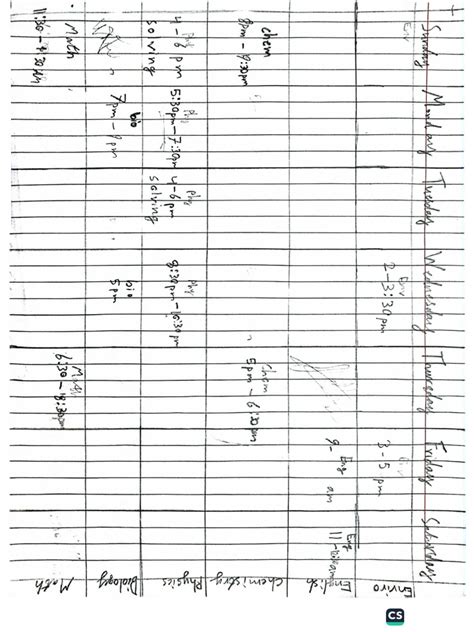 Sunday Monday Tuesday Wednesday Thursday Friday Saturday
Env
Env
2-3:30pm
3-5 pm
Enviro
Eng
9- am
Eng
English
chem
8pm - 9:30pm
Chem
5pm - 6:30pm
Chemistry
Phy
4-6 pm
solving
Phy
5:30pm-7:30pm
Phy
4-6pm
solving
Phy
8:30pm-10:30pm
Physics
bio
7pm - 9pm
bio
5pm
Biology
Math
Math
6:30-8:30pm
Math
CS